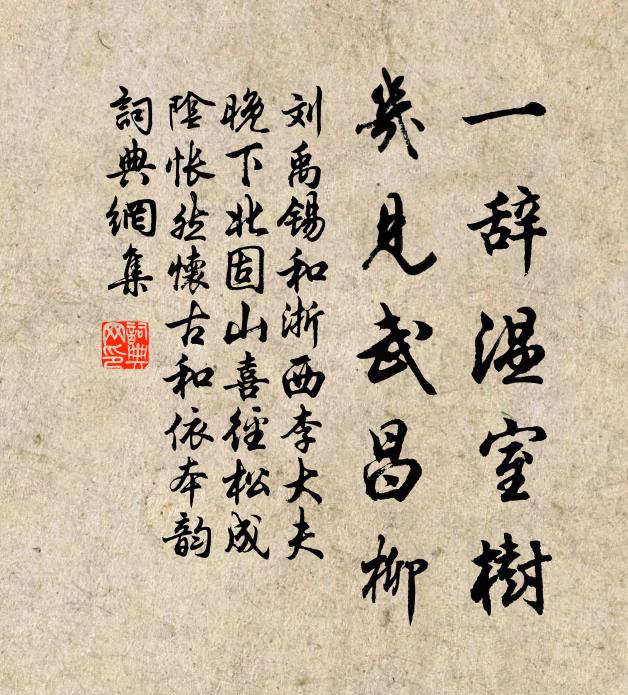 一辞温室樹
幾見武昌柳
刘禹锡和浙西李大夫
晚下北固山喜径松成
陰怅然懷古和依本韵
詞典網集
詞典網印